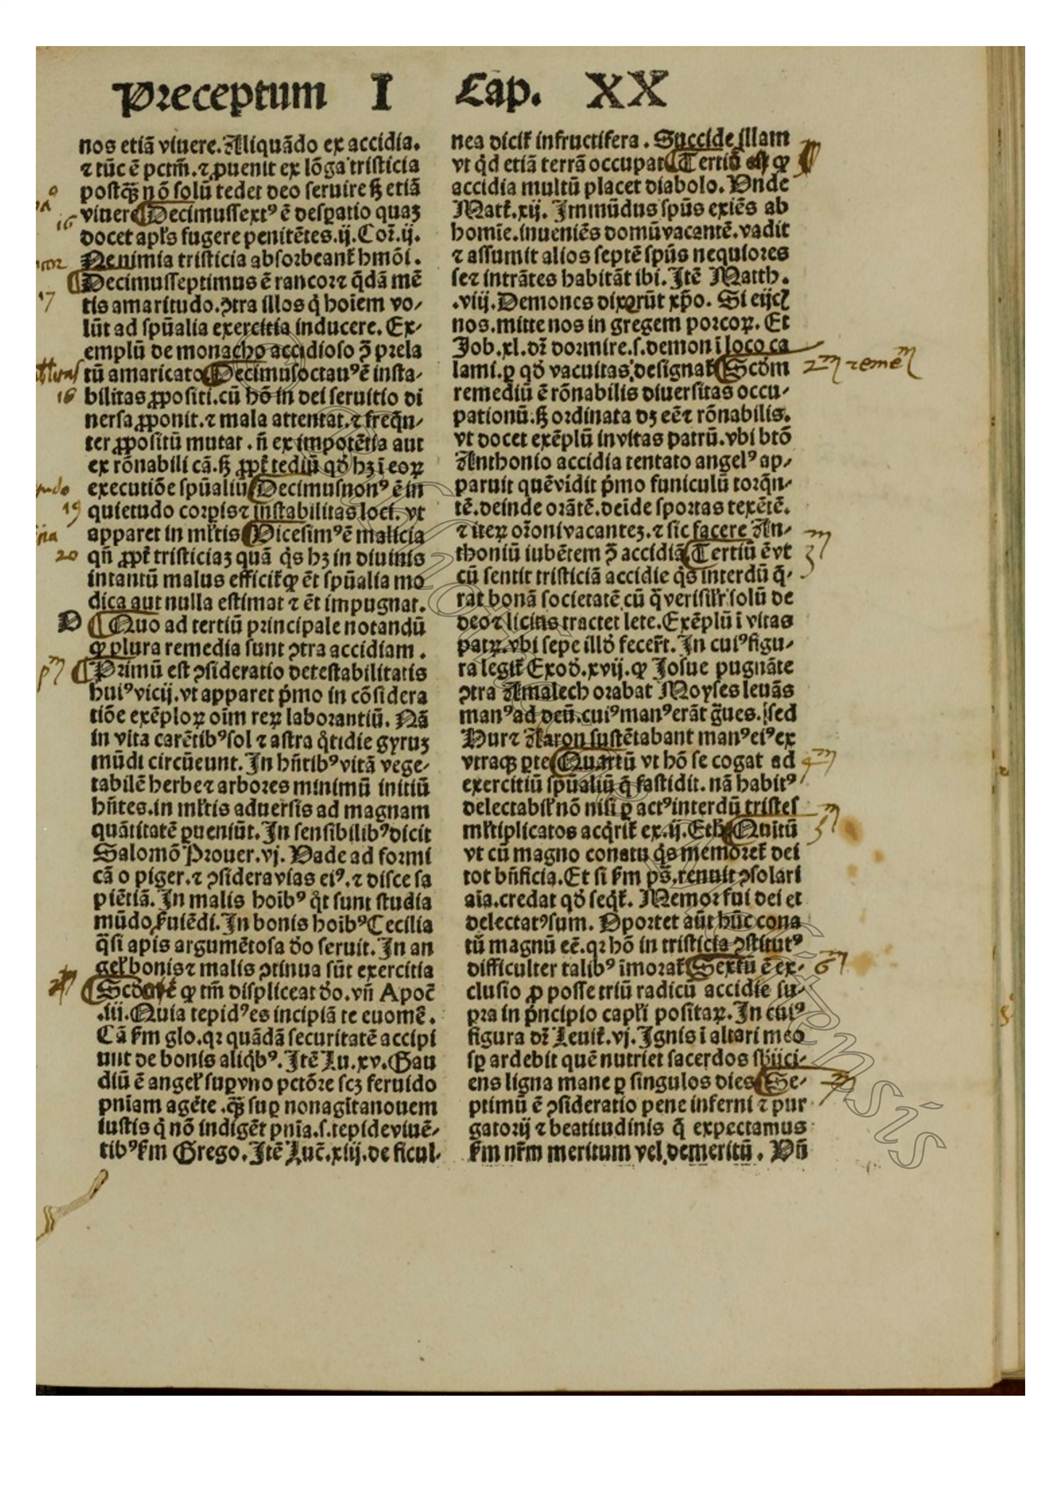 Preceptum I Cap. XX
nos etiā viuere. Aliquādo ex accidia.
⁊ tūc ē pctm̄. ⁊ ꝓuenit ex lōga tristicia
postꝙ̄ nō solū tedet deo seruire sꝫ etiā
viuere Decimussextꝰ ē desꝑatio quaꝫ
docet apl's fugere penitētes. ij. Cor. ij.
Ne nimia tristicia absorbeant̄ hmōi.
Decimusseptimus ē rancor ⁊ q̄dā mē
tis amaritudo. ꝯtra illos q̇ hoīem vo⸗
lūt ad spūalia exercitia inducere. Ex⸗
emplū de monacho accidioso ꝯ̄ prela
tū amaricato Decimusoctauꝰ ē insta⸗
bilitas ꝓpositi. cū hō in dei seruitio di
uersa ꝓponit. ⁊ mala attentat. ⁊ freq̄n⸗
ter ꝓpositū mutat. n̄ ex impotētia aut
ex rōnabili cā. sꝫ ꝓpt̄ tediū qd̄ hꝫ ī eoꝝ
executiōe spūaliū Decimusnonꝰ ē in
quietudo corꝑis ⁊ instabilitas loci. vt
apparet in ml'tis Vicesimꝰ ē malicia
qn̄ ꝓpt̄ tristiciaꝫ quā q̇s hꝫ in diuinis
intantū malus efficit̄ ꝙ ēt spūalia mo
dica aut nulla estimat ⁊ ēt impugnat.
D Quo ad tertiū principale notandū
ꝙ plura remedia sunt ꝯtra accidiam.
Primū est ꝯsideratio detestabilitatis
huiꝰ vicij. vt apparet p̄mo in cōsidera
tiōe exēploꝝ oīm reꝝ laborantiū. Nā
in vita carētibꝰ sol ⁊ astra q̇tidie gyruꝫ
mūdi circūeunt. In hn̄tibꝰ vitā vege⸗
tabilē herbe ⁊ arbores minimū initiū
hn̄tes. in ml'tis aduersis ad magnam
quātitatē ꝑueniūt. In sensibilibꝰ dicit
Salomō Prouer. vj. Vade ad formi
cā o piger. ⁊ ꝯsidera vias eiꝰ. ⁊ disce sa
piētiā. In malis hoībꝰ q̇t sunt studia
mūdo s̄uiēdi. In bonis hoībꝰ Cecilia
q̄si apis argumētosa dō seruit. In an
gel' bonis ⁊ malis ꝯtinua sūt exercitia
ꝙ tm̄ displiceat dō. vn̄ Apoc̄
.iij. Quia tepidꝰ es incipiā te euomē.
Cā s̄m glo. qꝛ quādā securitatē accipi
unt de bonis aliq̇bꝰ. Itē Lu. xv. Gau
diū ē angel' suꝑ vno pctōre scꝫ feruido
pn̄iam agēte. ꝙ̄ suꝑ nonagītanouem
iustis q̇ nō indigēt pn̄ia. s. tepide viuē⸗
tibꝰ s̄m Grego. Itē Luc̄. xiij. de ficul⸗
nea dicit̄ infructifera. Succide illam
vt qd̄ etiā terrā occupat Tertiū est ꝙ
accidia multū placet diabolo. Vnde
Matt̄. xij. Immūdus spūs exiēs ab
homīe. inueniēs domū vacantē. vadit
⁊ assumit alios septē spūs nequiores
se ⁊ intrātes habitāt ibi. Itē Matth.
.viij. Demones dixerūt xp̄o. Si eijcis
nos. mitte nos in gregem porcoꝝ. Et
Job. xl. dr̄ dormire. s. demon ī loco ca
lami. ꝑ qd̄ vacuitas designat̄ Scd̄m
remediū ē rōnabilis diuersitas occu⸗
pationū. sꝫ ordinata dꝫ eē ⁊ rōnabilis.
vt docet exēplū in vitas patrū. vbi btō
Anthonio accidia tentato angelꝰ ap⸗
paruit quē vidit p̄mo funiculū torq̄n⸗
tē. deinde orātē. deīde sportas texētē.
⁊ iteꝝ orōni vacanteꝫ. ⁊ sic facere An⸗
thoniū iubētem ꝯ̄ accidiā Tertiū ē vt
cū sentit tristiciā accidie q̇s interdū q̄⸗
rat bonā societatē cū q̄ verisil'r solū de
deo ⁊ licitis tractet lete. Exēplū ī vitas
patꝝ. vbi sepe illd̄ fecer̄t. In cuiꝰ figu⸗
ra legit̄ Exod̄. xvij. ꝙ Josue pugnāte
ꝯtra Amalech orabat Moyses leuās
manꝰ ad deū. cuiꝰ manꝰ erāt ḡues. sed
Hur ⁊ Aaron sustētabant manꝰ eiꝰ ex
vtraqꝫ ꝑte Quartū vt hō se cogat ad
exercitiū spūaliū q̄ fastidit. nā habitꝰ
delectabil' nō nisi ꝑ actꝰ interdū tristes
ml'tiplicatos acq̇rit̄ ex. ij. Eth̄ Quītū
vt cū magno conatu q̇s memoret̄ dei
tot bn̄ficia. Et si s̄m ps̄. renuit ꝯsolari
aīa. credat qd̄ seqt̄. Memor fui dei et
delectatꝰ sum. Oportet aūt hūc cona
tū magnū eē. qꝛ hō in tristicia ꝯstitutꝰ
difficulter talibꝰ īmorat̄ Sextū ē ex⸗
clusio ꝓ posse triū radicū accidie su⸗
pra in p̄ncipio capl'i positaꝝ. In cuiꝰ
figura dr̄ Leuit̄. vj. Ignis ī altari meo
sꝑ ardebit quē nutriet sacerdos sbijci⸗
ens ligna mane ꝑ singulos dies Se⸗
ptimū ē ꝯsideratio pene inferni ⁊ pur
gatorij ⁊ beatitudinis q̄ expectamus
s̄m nr̄m meritum vel demeritū. Vn̄
16
17
18
19
20